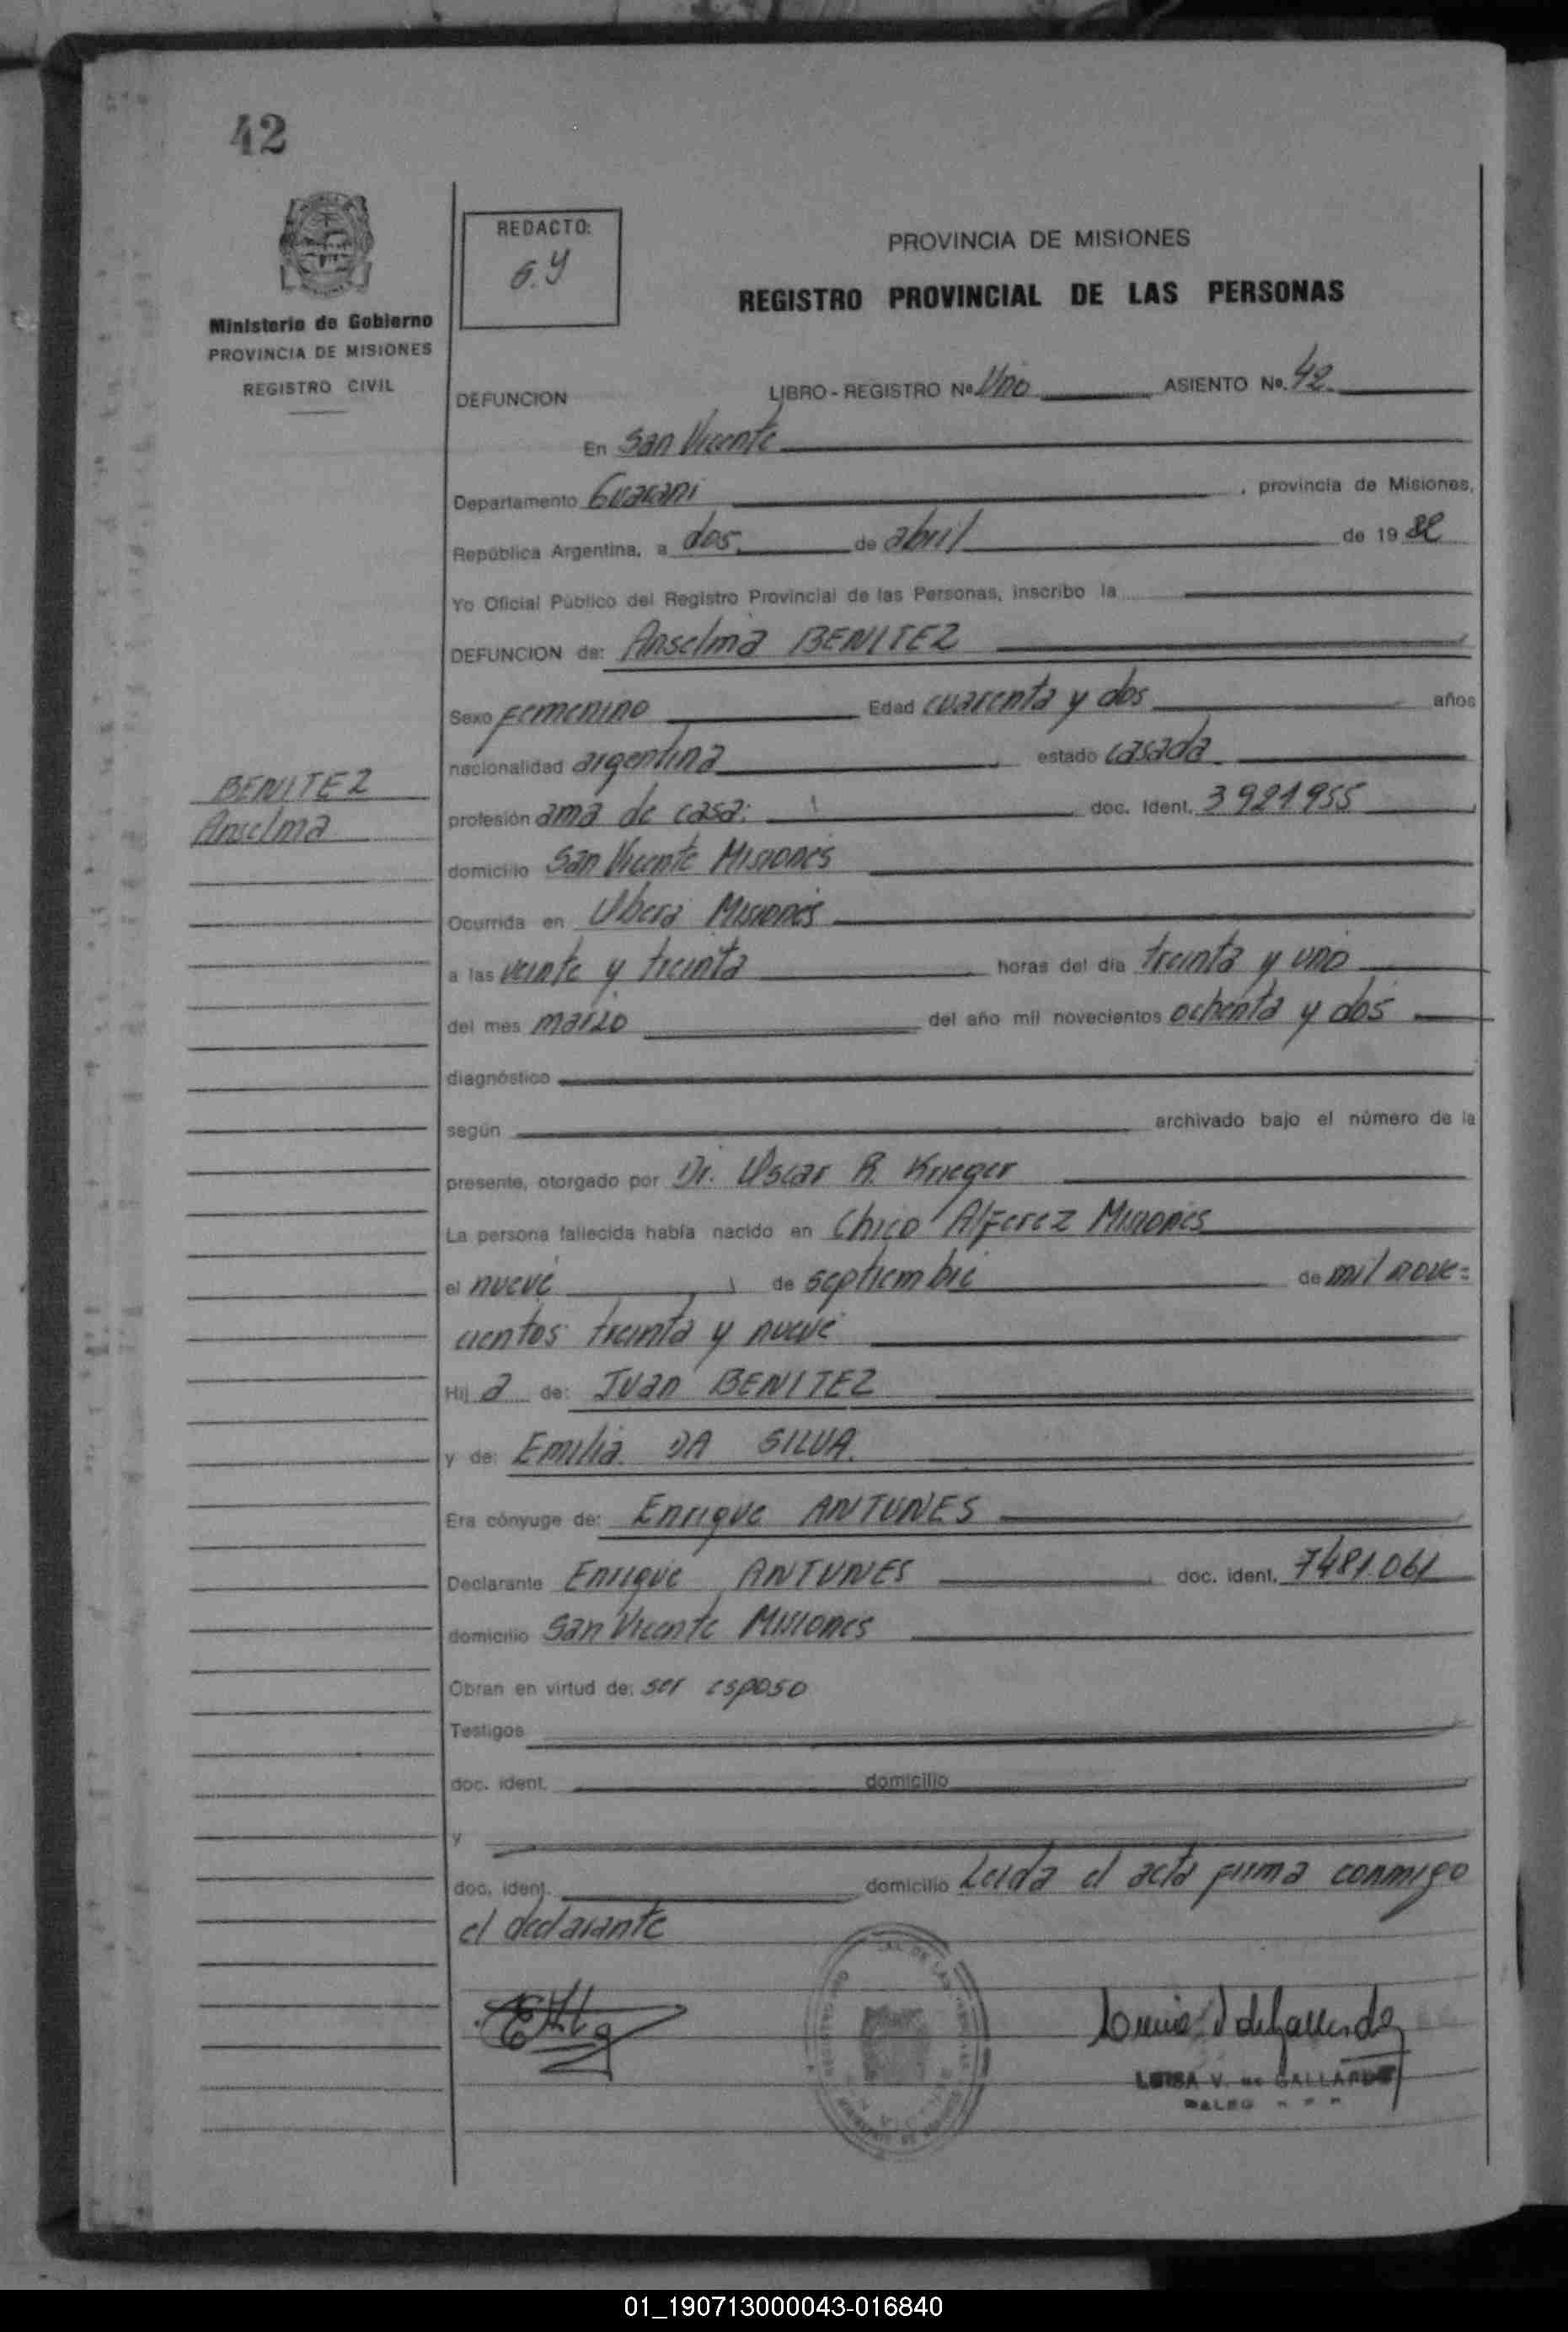 42
REDACTO:
G.Y
Ministerio de Gobierno
PROVINCIA DE MISIONES
REGISTRO CIVIL
PROVINCIA DE MISIONES
REGISTRO PROVINCIAL DE LAS PERSONAS
DEFUNCION LIBRO - REGISTRO Nº Uno ASIENTO Nº. 42
En San Vicente
Departamento Guarani , provincia de Misiones,
República Argentina, a dos de abril de 19 82
Yo Oficial Público del Registro Provincial de las Personas, inscribo la
DEFUNCION de: Anselma BENITEZ
Sexo Femenino Edad cuarenta y dos años
nacionalidad argentina estado casada
BENITEZ
Anselma
profesión ama de casa. doc. Ident. 3921955
domicilio San Vicente Misiones
Ocurrida en Obera Misiones
a las veinte y treinta horas del día treinta y uno
del mes marzo del año mil novecientos ochenta y dos
diagnóstico
según archivado bajo el número de la
presente, otorgado por Dr. Oscar R. Krieger
La persona fallecida había nacido en Chico Alferez Misiones
el nueve de septiembre de mil nove=
cientos treinta y nueve
Hij a de: Juan BENITEZ
y de: Emilia DA SILVA.
Era cónyuge de: Enrique ANTUNES
Declarante Enrique ANTUNES doc. ident. 7481.061
domicilio San Vicente Misiones
Obran en virtud de: ser esposo
Testigos
doc. ident. domicilio
y
doc. ident. domicilio Leida el acta firma conmigo
el declarante
LUISA V. de GALLARDO
01_190713000043-016840